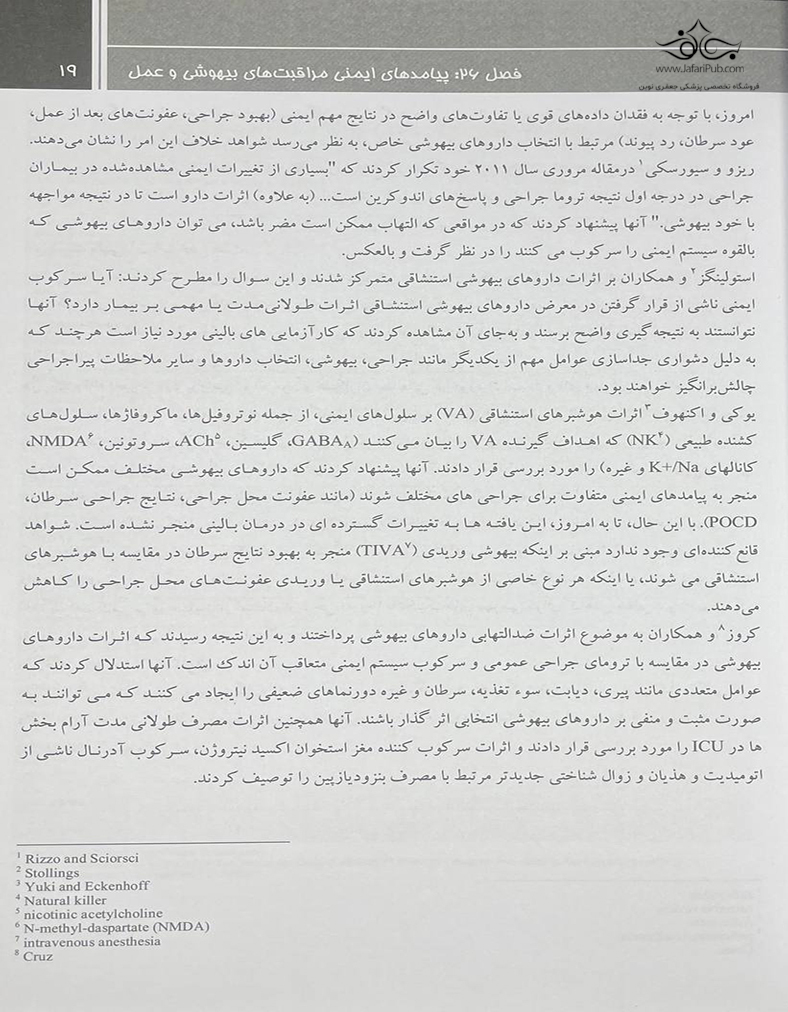 جعفری
www.JafariPub.com
فروشگاه تخصصی پزشکی جعفری نوین
فصل ۲۶: پیامدهای ایمنی مراقبت‌های بیهوشی و عمل
۱۹
امروز، با توجه به فقدان داده‌های قوی یا تفاوت‌های واضح در نتایج مهم ایمنی (بهبود جراحی، عفونت‌های بعد از عمل،
عود سرطان، رد پیوند) مرتبط با انتخاب داروهای بیهوشی خاص، به نظر می‌رسد شواهد خلاف این امر را نشان می‌دهند.
ریزو و سیورسکی۱ درمقاله مروری سال ۲۰۱۱ خود تکرار کردند که "بسیاری از تغییرات ایمنی مشاهده‌شده در بیماران
جراحی در درجه اول نتیجه تروما جراحی و پاسخ‌های اندوکرین است... (به علاوه) اثرات دارو است تا در نتیجه مواجهه
با خود بیهوشی." آنها پیشنهاد کردند که در مواقعی که التهاب ممکن است مضر باشد، می توان داروهای بیهوشی که
بالقوه سیستم ایمنی را سرکوب می کنند را در نظر گرفت و بالعکس.
استولینگز۲ و همکاران بر اثرات داروهای بیهوشی استنشاقی متمرکز شدند و این سوال را مطرح کردند: آیا سرکوب
ایمنی ناشی از قرار گرفتن در معرض داروهای بیهوشی استنشاقی اثرات طولانی‌مدت یا مهمی بر بیمار دارد؟ آنها
نتوانستند به نتیجه‌گیری واضح برسند و به‌جای آن مشاهده کردند که کارآزمایی های بالینی مورد نیاز است هرچند که
به دلیل دشواری جداسازی عوامل مهم از یکدیگر مانند جراحی، بیهوشی، انتخاب داروها و سایر ملاحظات پیراجراحی
چالش‌برانگیز خواهند بود.
یوکی و اکنهوف۳ اثرات هوشبرهای استنشاقی (VA) بر سلول‌های ایمنی، از جمله نوتروفیل‌ها، ماکروفاژها، سلول‌های
کشنده طبیعی (NK۴) که اهداف گیرنده VA را بیان می‌کنند (GABAA، گلیسین، ACh۵، سروتونین، NMDA۶،
کانالهای K+/Na و غیره) را مورد بررسی قرار دادند. آنها پیشنهاد کردند که داروهای بیهوشی مختلف ممکن است
منجر به پیامدهای ایمنی متفاوت برای جراحی های مختلف شوند (مانند عفونت محل جراحی، نتایج جراحی سرطان،
POCD). با این حال، تا به امروز، این یافته ها به تغییرات گسترده ای در درمان بالینی منجر نشده است. شواهد
قانع‌کننده‌ای وجود ندارد مبنی بر اینکه بیهوشی وریدی (TIVA۷) منجر به بهبود نتایج سرطان در مقایسه با هوشبرهای
استنشاقی می شوند، یا اینکه هر نوع خاصی از هوشبرهای استنشاقی یا وریدی عفونت‌های محل جراحی را کاهش
می‌دهند.
کروز۸ و همکاران به موضوع اثرات ضدالتهابی داروهای بیهوشی پرداختند و به این نتیجه رسیدند که اثرات داروهای
بیهوشی در مقایسه با ترومای جراحی عمومی و سرکوب سیستم ایمنی متعاقب آن اندک است. آنها استدلال کردند که
عوامل متعددی مانند پیری، دیابت، سوء تغذیه، سرطان و غیره دورنماهای ضعیفی را ایجاد می کنند که می توانند به
صورت مثبت و منفی بر داروهای بیهوشی انتخابی اثر گذار باشند. آنها همچنین اثرات مصرف طولانی مدت آرام بخش
ها در ICU را مورد بررسی قرار دادند و اثرات سرکوب کننده مغز استخوان اکسید نیتروژن، سرکوب آدرنال ناشی از
اتومیدیت و هذیان و زوال شناختی جدیدتر مرتبط با مصرف بنزودیازپین را توصیف کردند.
1 Rizzo and Sciorsci
2 Stollings
3 Yuki and Eckenhoff
4 Natural killer
5 nicotinic acetylcholine
6 N-methyl-daspartate (NMDA)
7 intravenous anesthesia
8 Cruz